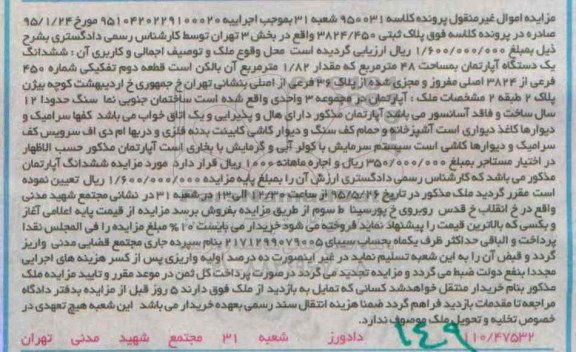 مزایده اموال غیرمنقول پرونده کلاسه ۹۵۰۰۳۱ شعبه ۳۱ بموجب اجراییه ۹۵۱۰۴۲۰۲۲۹۱۰۰۰۲۰ مورخ ۹۵/۱/۲۴
صادره در پرونده کلاسه فوق پلاک ثبتی ۳۸۲۴/۴۵۰ واقع در بخش ۳ تهران توسط کارشناس رسمی دادگستری بشرح
ذیل بمبلغ ۱/۶۰۰/۰۰۰/۰۰۰ ریال ارزیابی گردیده است محل وقوع ملک و توصیف اجمالی و کاربری آن : ششدانگ
یک دستگاه آپارتمان بمساحت ۴۸ مترمربع که مقدار ۱/۸۲ مترمربع آن بالکن است قطعه دوم تفکیکی شماره ۴۵۰
فرعی از ۳۸۲۴ اصلی مفروز و مجزی شده از پلاک ۳۶ فرعی از اصلی بنشانی تهران خ جمهوری خ اردیبهشت کوچه بیژن
پلاک ۲ طبقه ۲ مشخصات ملک : آپارتمان در مجموعه ۳ واحدی واقع شده است ساختمان جنوبی نما سنگ حدودا ۱۲
سال ساخت و فاقد آسانسور می باشد آپارتمان مذکور دارای هال و پذیرایی و یک اتاق خواب می باشد کفها سرامیک و
دیوارها کاغذ دیواری است آشپزخانه و حمام کف سنگ و دیوار کاشی کابینت بدنه فلزی و دربها ام دی اف سرویس کف
سرامیک و دیوارها کاشی است سیستم سرمایش با کولر آبی و گرمایش با بخاری است آپارتمان مذکور حسب الاظهار
در اختیار مستاجر بمبلغ ۳۵۰/۰۰۰/۰۰۰ ریال و اجاره ماهانه ۱۰۰۰ ریال قرار دارد مورد مزایده ششدانگ آپارتمان
مذکور می باشد که کارشناس رسمی دادگستری ارزش آن را بمبلغ پایه مزایده ۱/۶۰۰/۰۰۰/۰۰۰ ریال تعیین نموده
است مقرر گردید ملک مذکور در تاریخ ۹۵/۵/۲۶ از ساعت ۱۲/۳۰ الی ۱۳ در شعبه ۳۱ در نشانی مجتمع شهید مدنی
واقع در خ انقلاب خ قدس روبروی خ پورسینا ط سوم از طریق مزایده بفروش برسد مزایده از قیمت پایه اعلامی آغاز
و بکسی که بالاترین قیمت را پیشنهاد نماید فروخته می شود خریدار می بایست ۱۰٪ مبلغ مزایده را فی المجلس نقدا
پرداخت و الباقی حداکثر ظرف یکماه بحساب سیبای ۲۱۷۱۲۹۹۰۷۹۰۰۵ بنام سپرده جاری مجتمع قضایی مدنی واریز
گردد و قبض آن را به این شعبه تسلیم نماید در غیر اینصورت ده درصد اولیه واریزی پس از کسر هزینه های اجرایی
مجددا بنفع دولت ضبط می گردد و مزایده تجدید می گردد در صورت پرداخت کل ثمن در موعد مقرر و تایید مزایده ملک
مذکور بنام خریدار منتقل خواهد شد کسانی که تمایل به بازدید از ملک فوق دارند ۵ روز قبل از مزایده بدفتر دادگاه
مراجعه تا مقدمات بازدید فراهم گردد ضمنا هزینه انتقال سند رسمی بعهده خریدار می باشد این شعبه هیچ تعهدی در
خصوص تخلیه و تحویل ملک موصوف ندارد.
۱۱۰/۴۷۵۳۲ دادورز شعبه ۳۱ مجتمع شهید مدنی تهران